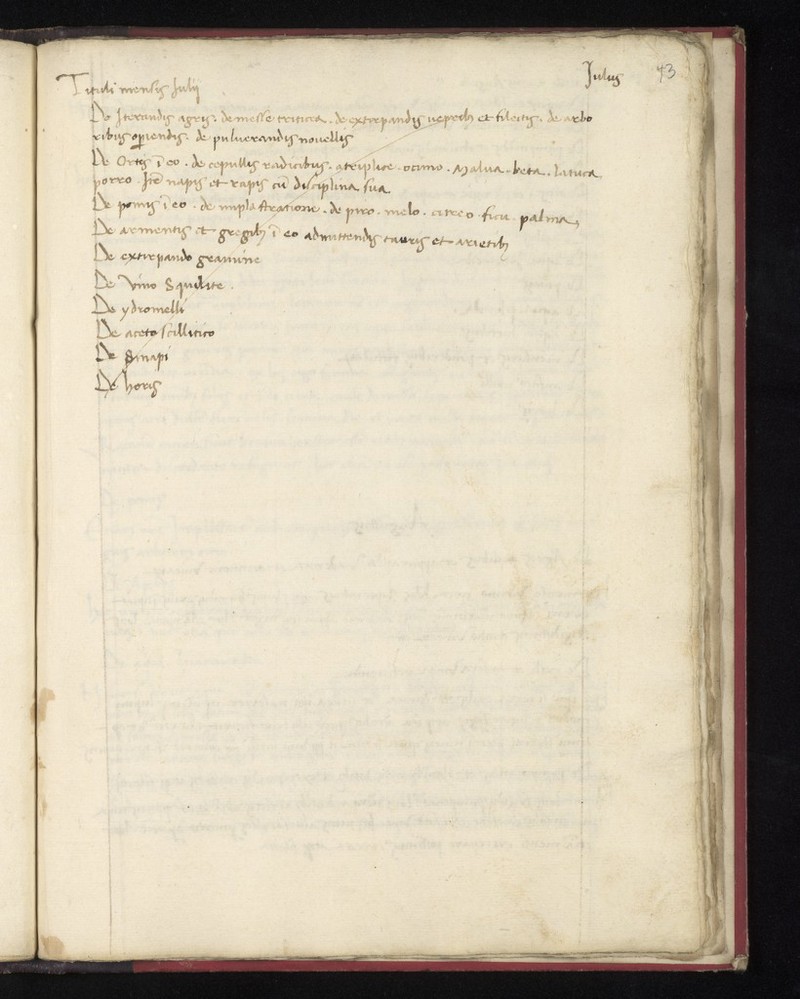 Julius 43
Tituli mensis Julij
De Iterandis agris . de messe triticea . de extirpandis ueprib; et filectis . de arbo
ribus operiendis . de puluerandis nouellis
De Ortis ī eo . de cepullis radicibus . atriplice . ocimo . Malua . beta . latuca
porro . Itē napis et rapis cū disciplina sua
De pomis ī eo . de implastratione . de piro . melo . citreo . ficu . palma
De armentis et gregib; ī eo admittendis tauris et arietib;
De extirpando gramine
De Vino Squillite .
De ydromelli
De aceto scillitico
De Sinapi
De horis